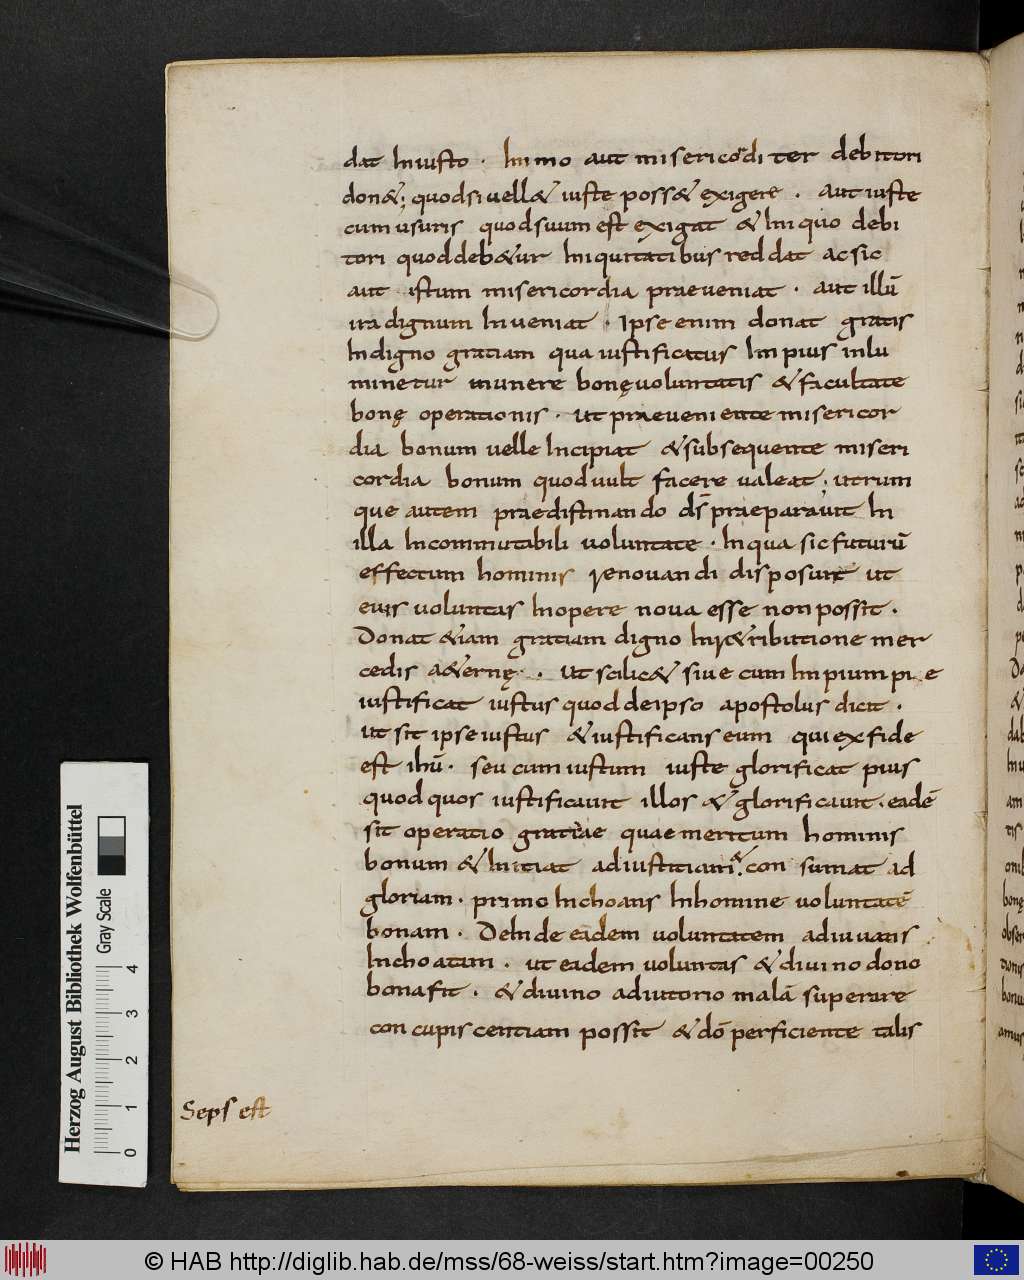 dat Iniusto · Immo aut misericorditer debitori
don&; quodsi uell& iuste poss& exigere · Aut iuste
cum usuris quod suum est exigat & Iniquo debi
tori quod deb&ur Iniquitatibus reddat ac sic
aut istum misericordia praeueniat · aut illū
ira dignum Inueniat · Ipse enim donat gratis
Indigno gratiam qua iustificatus Impius inlu
minetur munere bonę uoluntatis & facultate
bonę operationis · ut praeueniente misericor
dia bonum uelle Incipiat & subsequente miseri
cordia bonum quod uult facere ualeat · utrum
que autem praedistinando ds̄ praeparauit In
illa Incommutabili uoluntate · In qua sic futurū
effectum hominis renouandi disposuit ut
eius uoluntas Inopere noua esse non possit ·
Donat &iam gratiam digno In r&ributione mer
cedis a&ernę · ut scilic& siue cum Impium pie
iustificat iustus quod de ipso apostolus dicit ·
ut sit ipse iustus & iustificans eum qui ex fide
est ihū · seu cum iustum iuste glorificat pius
quod quos iustificauit illos & glorificauit · eadē
sit operatio gratiae quae meritum hominis
bonum & Initiat ad iustitiam · & consumat ad
gloriam · primo Inchoans Inhomine uoluntatē
bonam · DeInde eadem uoluntatem adiuuans
Inchoatam · ut eadem uoluntas & diuino dono
bona fit · & diuino adiutorio malā superare
concupiscentiam possit & dō perficiente talis
Seps est
Herzog August Bibliothek Wolfenbüttel
Gray Scale
0 1 2 3 4
© HAB http://diglib.hab.de/mss/68-weiss/start.htm?image=00250